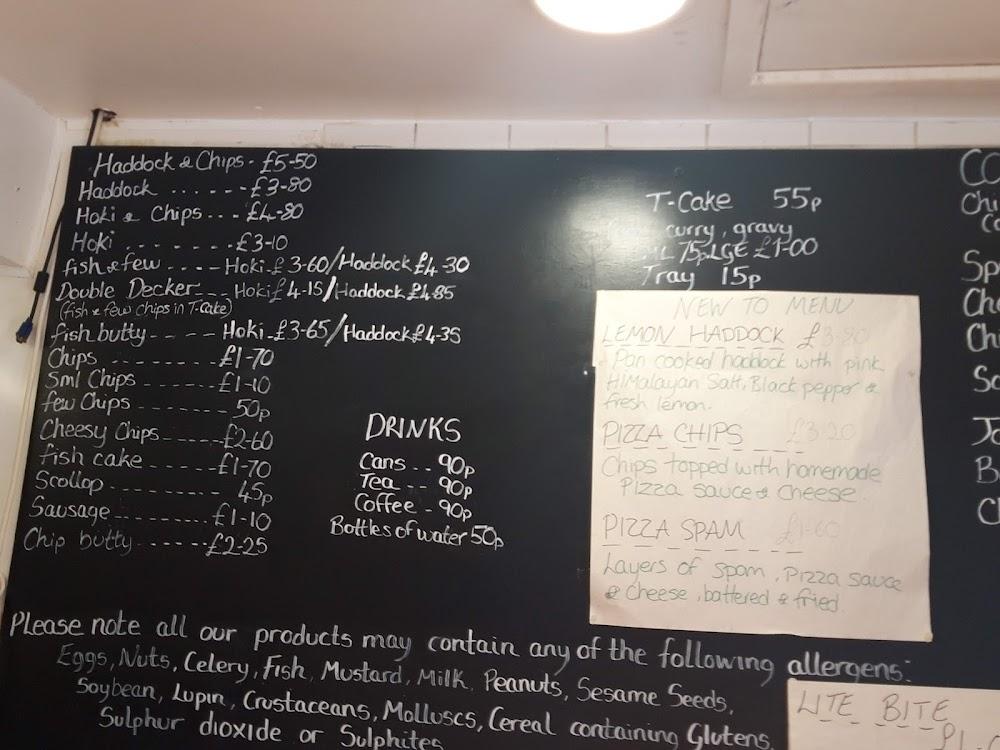 Haddock & Chips - £5-50
Haddock ...... - - - £3-80
Hoki & Chips... - £4-80
Hoki . . . - - - . . £3-10
fish & few .... - - Hoki - £3-60/Haddock £4-30
Double Decker - - - Hoki £4-15/Haddock £4-85
(fish & few chips in T-Cake)
fish butty - - - - Hoki - £3-65/Haddock £4-35
Chips - - - - - - - - £1-70
Sml Chips - - - - - - - £1-10
few Chips - - - - - - - - 50p
Cheesy Chips - - - - - £2-60
fish cake - - - - - - - £1-70
Scollop - - - - - - - - - 45p
Sausage - - - - - - - - - £1-10
Chip butty - - - - - - £2-25
DRINKS
Cans - - - 90p
Tea - - - 90p
Coffee - 90p
Bottles of water 50p
T-Cake 55p
curry, gravy
75p LGE £1-00
Tray 15p
NEW TO MENU
LEMON HADDOCK £3-80
Pan cooked haddock with pink
Himalayan Salt, Black pepper &
fresh lemon.
PIZZA CHIPS £3-20
Chips topped with homemade
Pizza sauce & cheese.
PIZZA SPAM £1-60
Layers of spam, Pizza sauce
& cheese, battered & fried.
Please note all our products may contain any of the following allergens:
Eggs, Nuts, Celery, Fish, Mustard, Milk, Peanuts, Sesame Seeds,
Soybean, Lupin, Crustaceans, Molluscs, Cereal containing Glutens,
Sulphur dioxide or Sulphites
LITE BITE